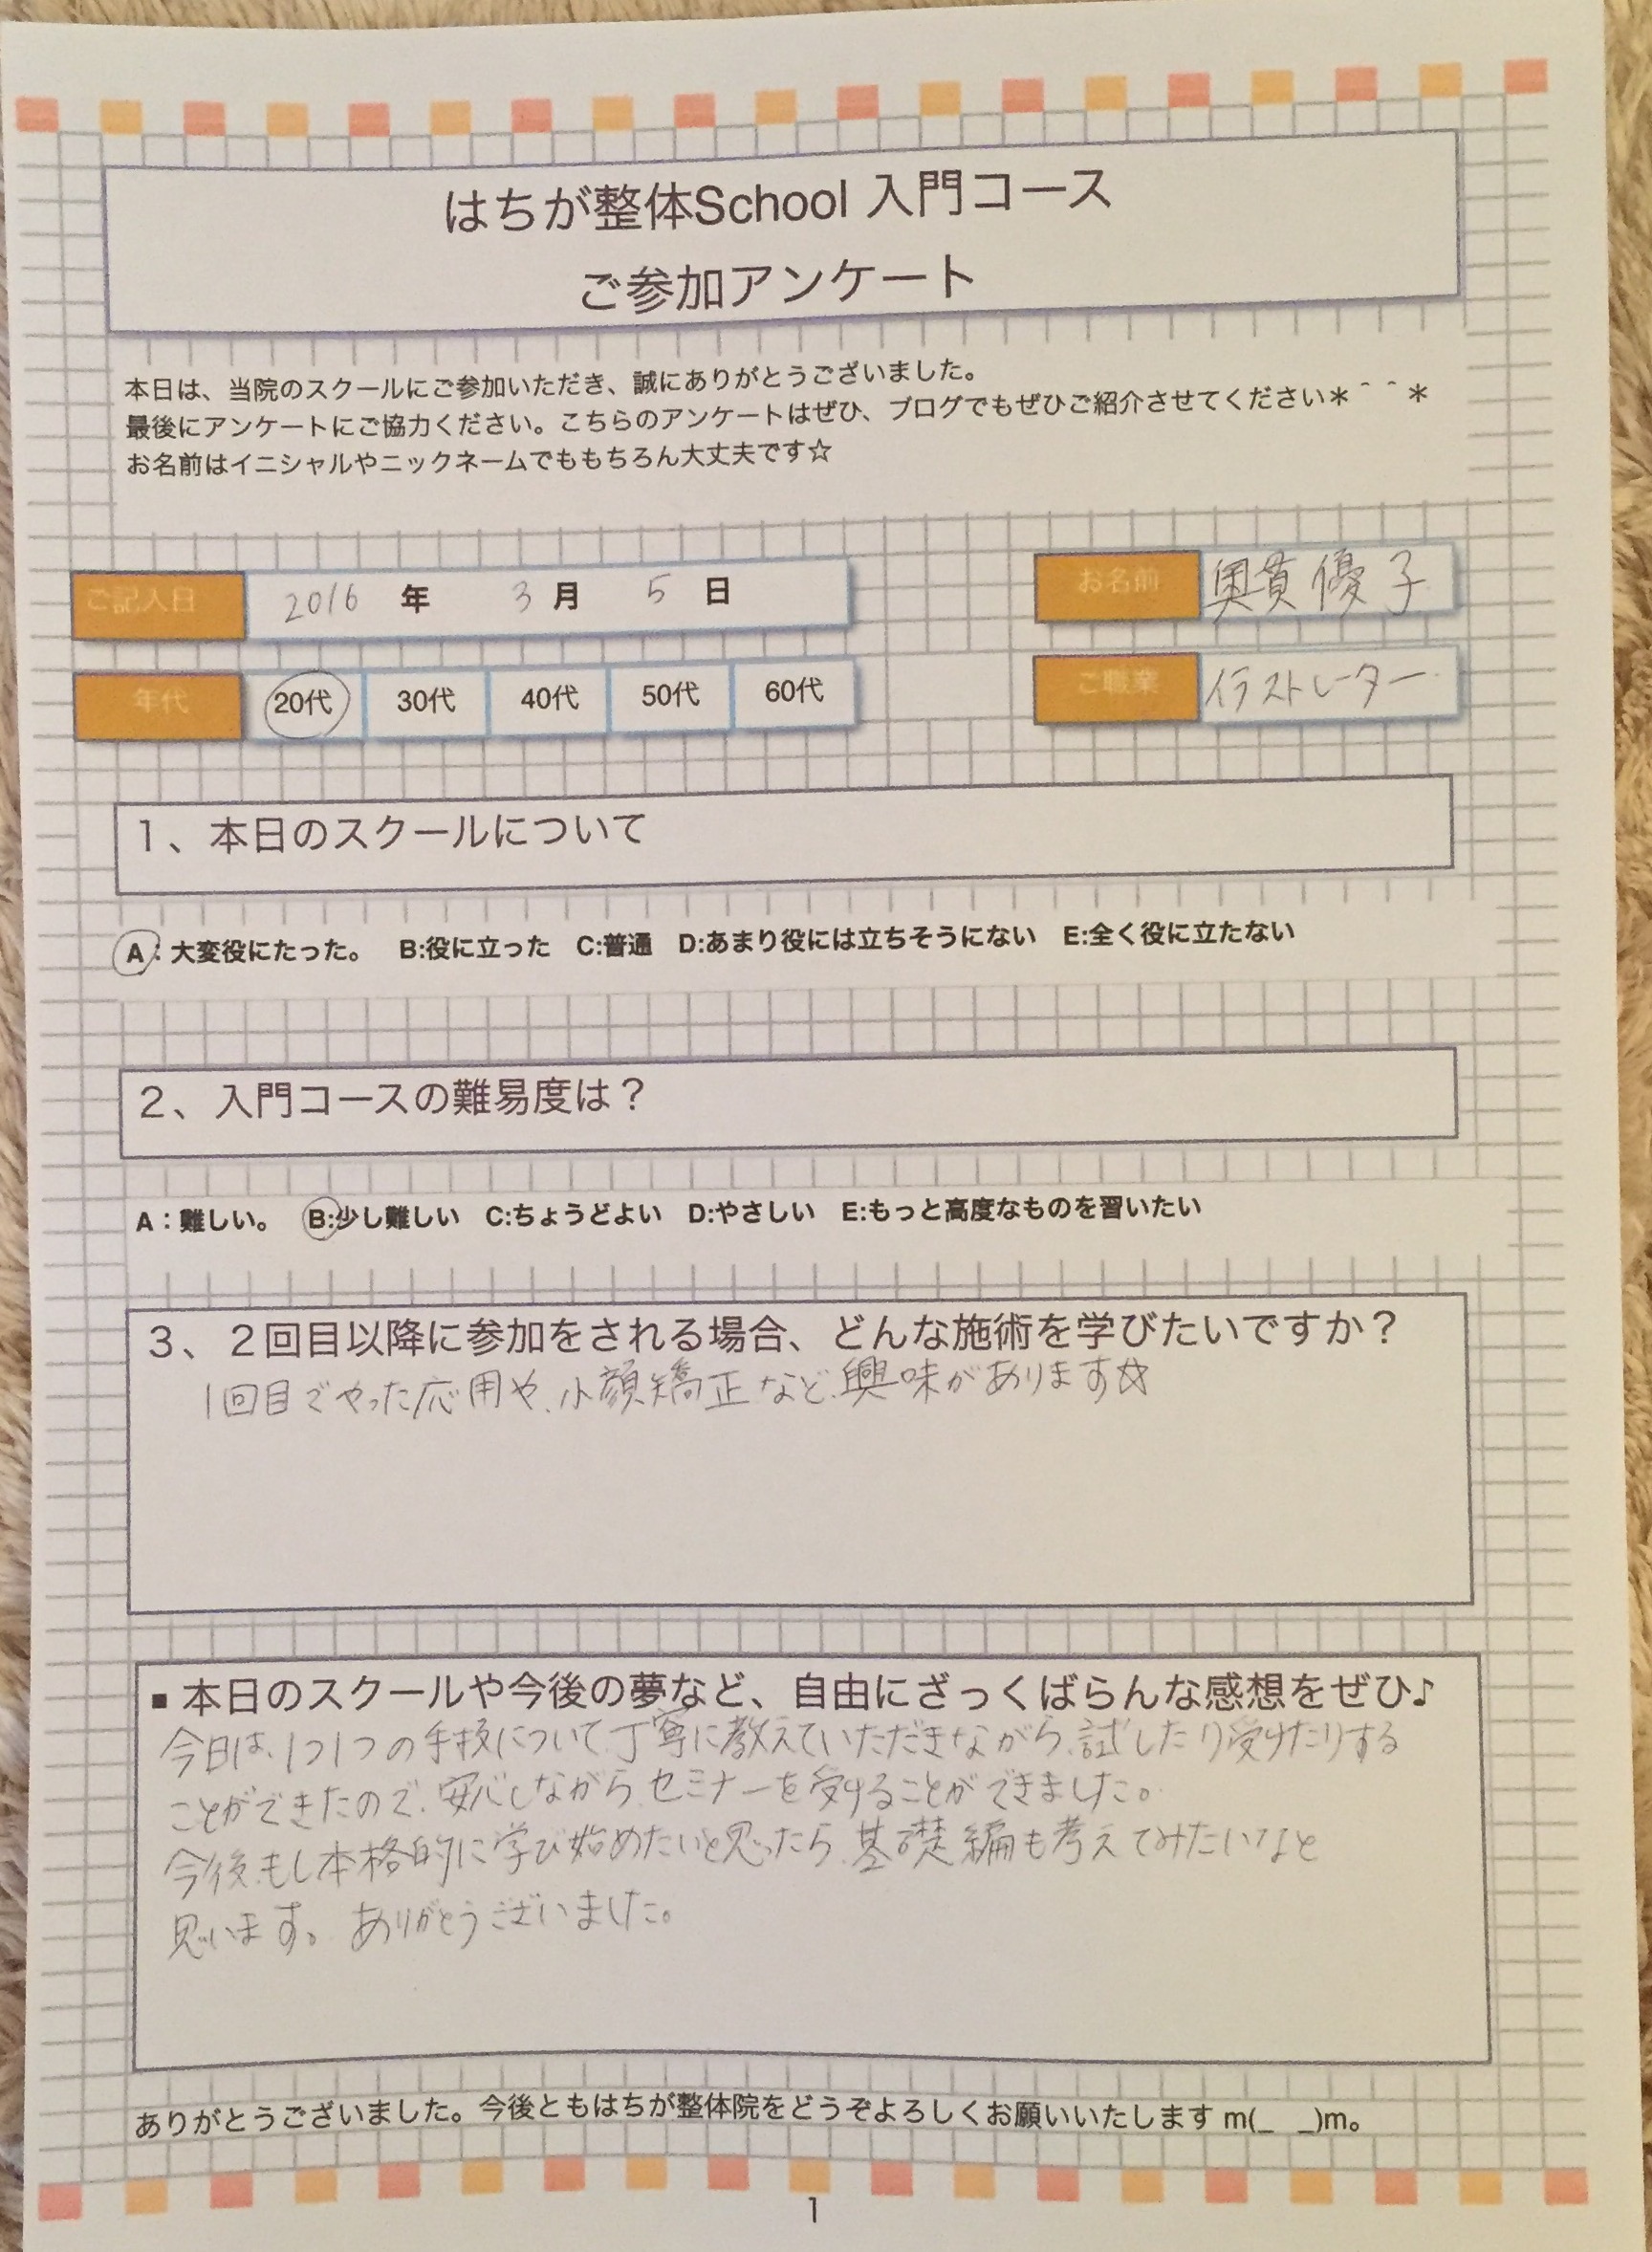 はちが整体School 入門コース
ご参加アンケート
本日は、当院のスクールにご参加いただき、誠にありがとうございました。
最後にアンケートにご協力ください。こちらのアンケートはぜひ、ブログでもぜひご紹介させてください＊＾＾＊
お名前はイニシャルやニックネームでももちろん大丈夫です☆
ご記入日 2016 年 3 月 5 日 お名前 奥貫優子
年代 20代 30代 40代 50代 60代 ご職業 イラストレーター
1、本日のスクールについて
A：大変役にたった。 B:役に立った C:普通 D:あまり役には立ちそうにない E:全く役に立たない
2、入門コースの難易度は？
A：難しい。 B:少し難しい C:ちょうどよい D:やさしい E:もっと高度なものを習いたい
3、2回目以降に参加をされる場合、どんな施術を学びたいですか？
1回目でやった応用や、小顔矯正など、興味があります☆
▪ 本日のスクールや今後の夢など、自由にざっくばらんな感想をぜひ♪
今日は、1つ1つの手技について、丁寧に教えていただきながら、試したり受けたりする
ことができたので、安心しながら、セミナーを受けることができました。
今後、もし本格的に学び始めたいと思ったら、基礎編も考えてみたいなと
思います。ありがとうございました。
ありがとうございました。今後ともはちが整体院をどうぞよろしくお願いいたします m(_ _)m。
1